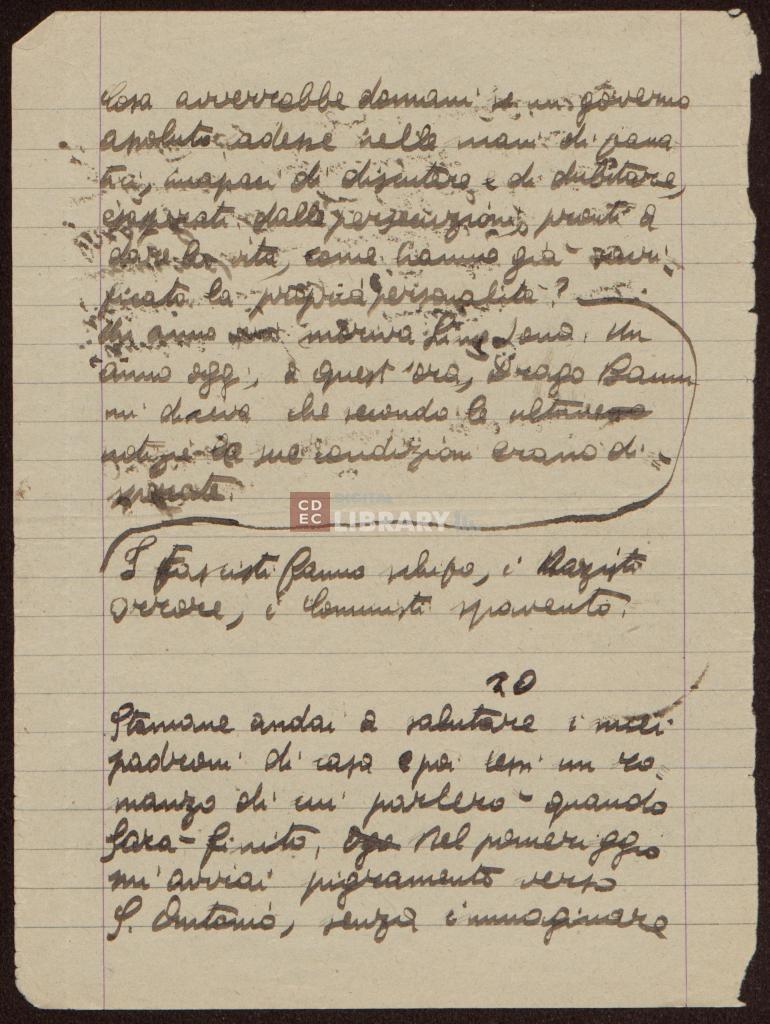 Cosa avverrebbe domani se un governo
assoluto cadesse nelle mani di fana
tici, incapaci di discutere e di dubitare,
esasperati dalle persecuzioni, pronti a
dare la vita, come hanno già sacri-
ficato la propria personalità?
Un anno moriva Jona. Un
anno oggi, a quest'ora, Drago
mi diceva che secondo le ultime
notizie le sue condizioni erano di
sperate.
CDEC DIGITAL LIBRARY.it
I fascisti fanno schifo, i Nazisti
orrore, i Comunisti spavento.
20
Stamane andai a salutare i miei
padroni di casa e poi lessi un ro-
manzo di cui parlerò quando
sarà finito. Nel pomeriggio
mi avviai pigramente verso
S. Antonio, senza immaginare